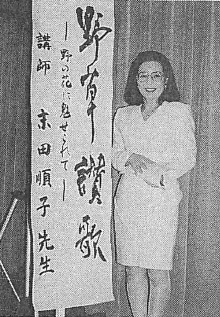 野草讃歌
―野の花に魅せられて―
講師 田順子先生